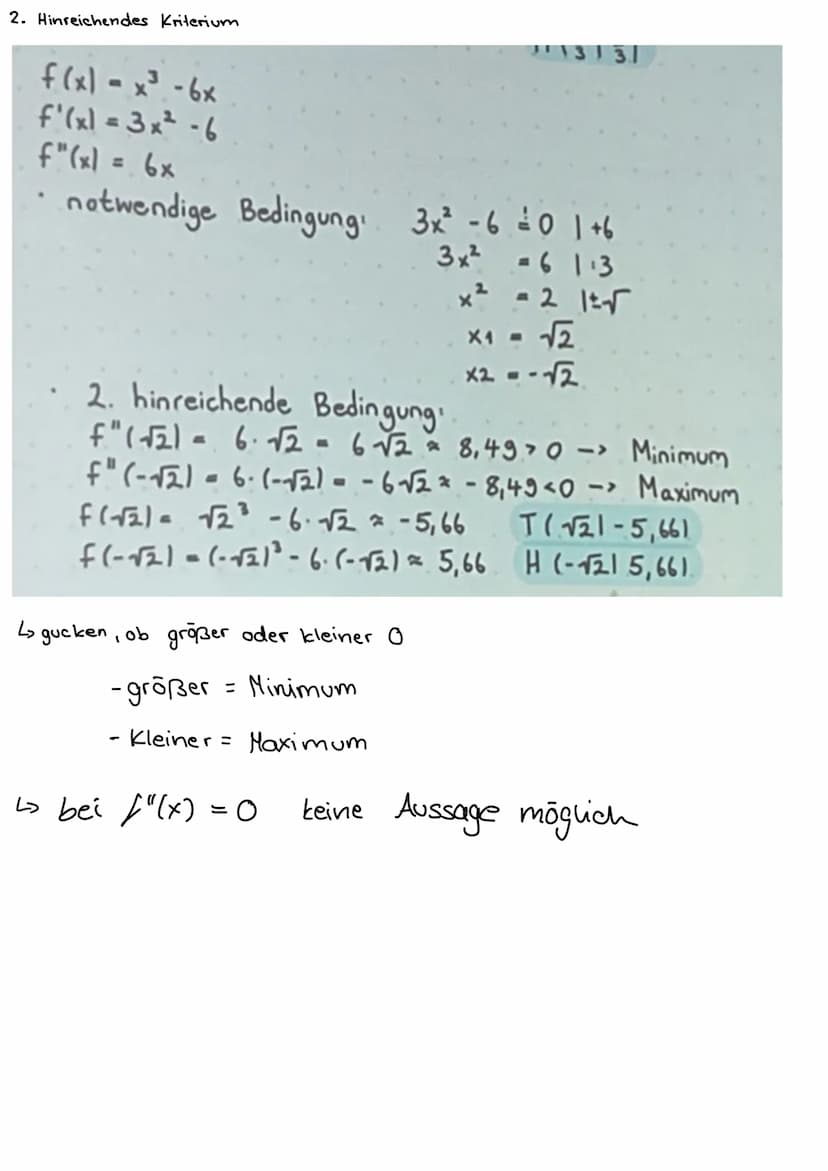 2. Hinreichendes Kriterium
f(x) = x³ - 6x
f'(x) = 3x² - 6
f"(x) = 6x
· notwendige Bedingung: 3x² - 6 ≟ 0 | +6
3x² = 6 | :3
x² = 2 | ±√
x1 = √2
x2 = -√2
· 2. hinreichende Bedingung:
f"(√2) = 6·√2 = 6√2 ≈ 8,49 > 0 -> Minimum
f"(-√2) = 6·(-√2) = -6√2 ≈ -8,49 < 0 -> Maximum
f(√2) = √2³ - 6·√2 ≈ -5,66 T(√2|-5,66)
f(-√2) = (-√2)³ - 6·(-√2) ≈ 5,66 H(-√2|5,66)
↳ gucken, ob größer oder kleiner 0
- größer = Minimum
- Kleiner = Maximum
↳ bei f"(x) = 0 keine Aussage möglich